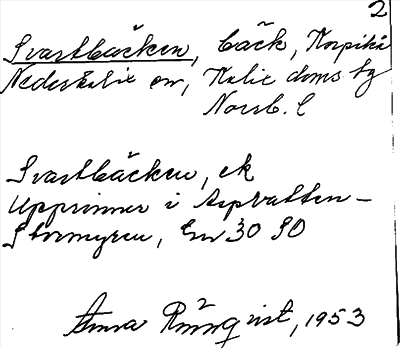 2
Svartbäcken, bäck, Korpikå
Nederkalix sn, Kalix doms hg
Norrb. l
Svartbäcken, ek
Upprinner i Aspvatten-
Stormyren, Ev 30 SO
Anna Rönnqvist, 1953